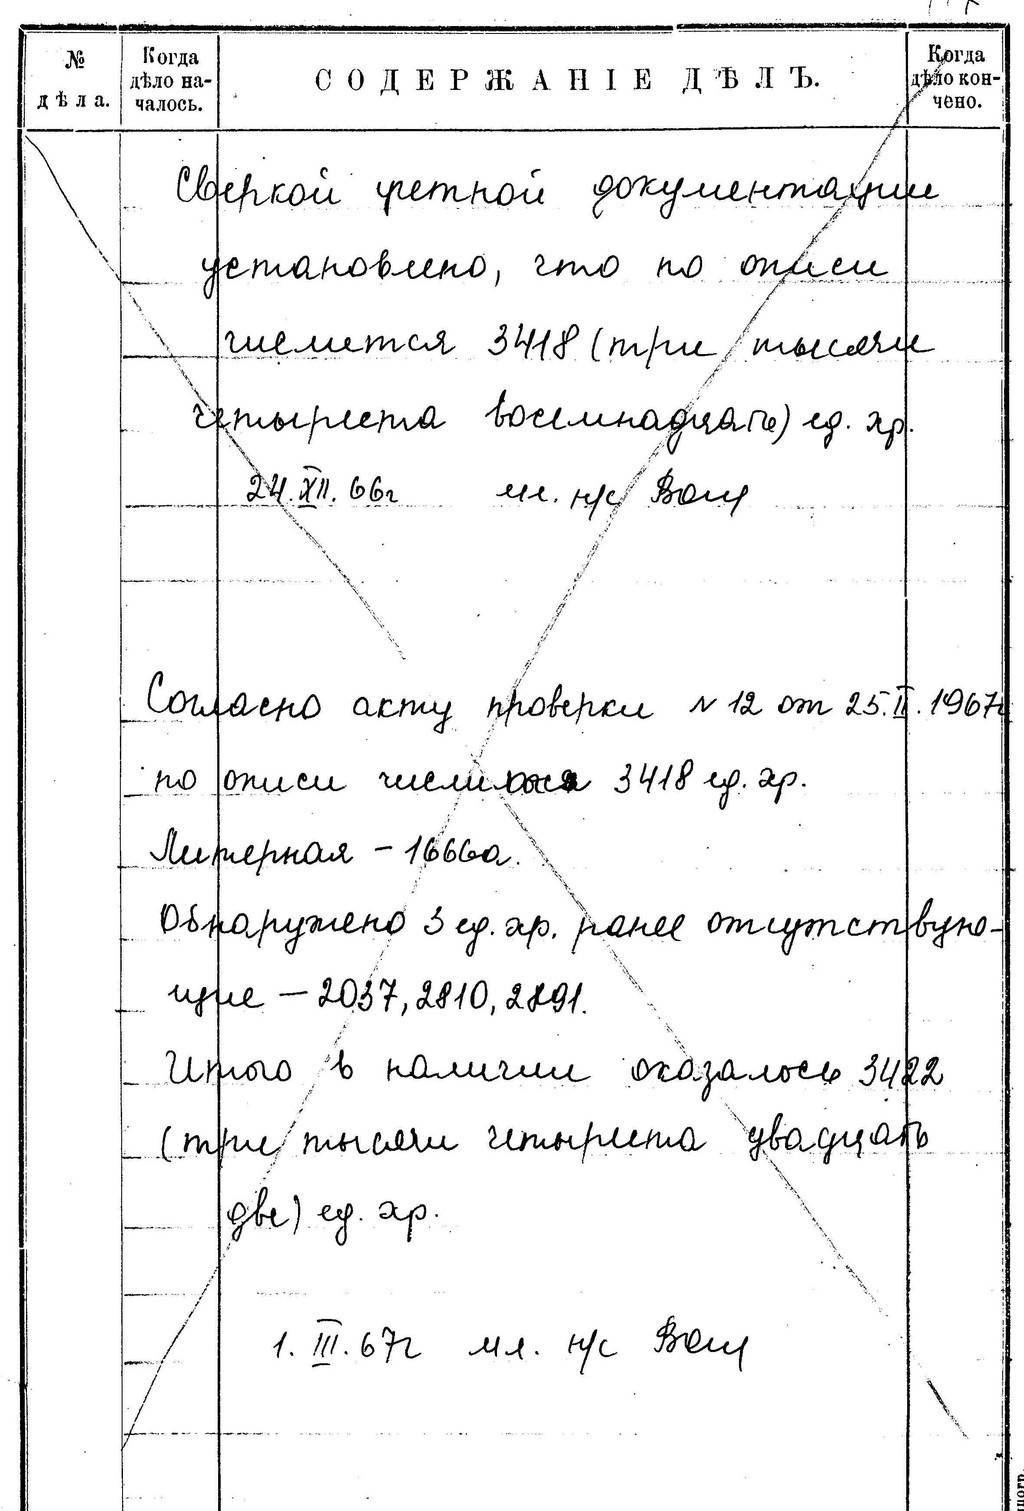 № дѣла.
Когда дѣло на-чалось.
СОДЕРЖАНІЕ ДѢЛЪ.
Когда дѣло кон-чено.
Сверкой учетной документации
установлено, что по описи
числится 3418 (три тысячи
четыреста восемнадцать) ед. хр.
24.XII.66г мл. н/с
Согласно акту проверки N 12 от 25.II.1967г
по описи числилось 3418 ед. хр.
Литерная – 1666а.
Обнаружено 3 ед. хр. ранее отсутствую-
щие – 2037, 2810, 2891.
Итого в наличии оказалось 3422
(три тысячи четыреста двадцать
две) ед. хр.
1.III.67г мл. н/с